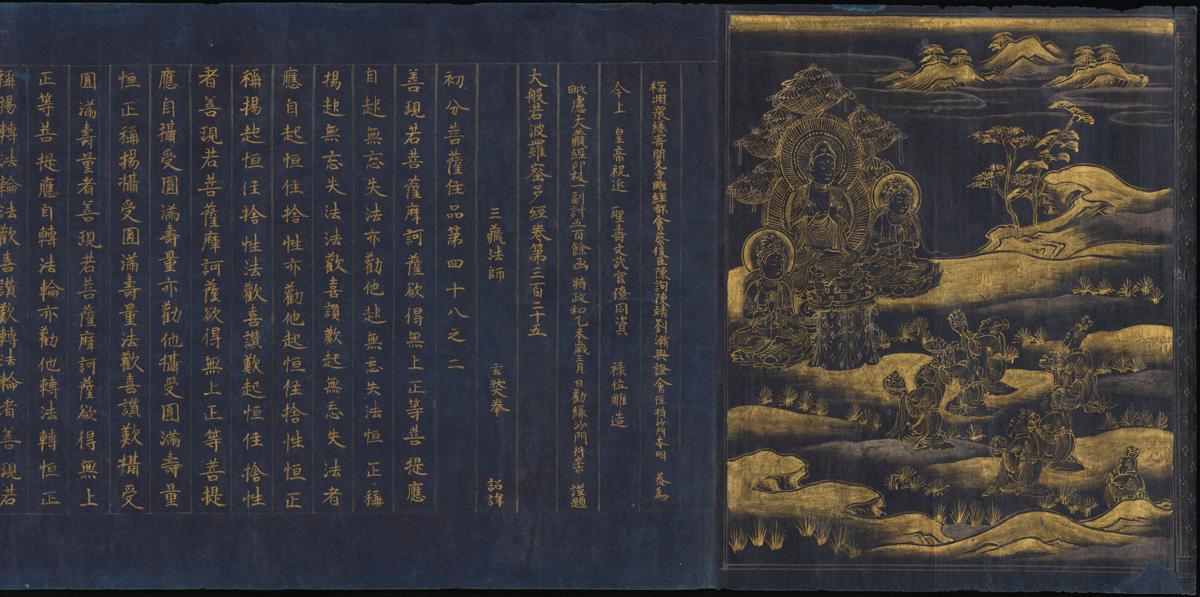 福州衆縁寺開元寺雕経都會蔡俊臣陳詢陳靖劉漸與證會住持沙門本明 恭為
今上 皇帝祝延 聖壽文武官僚同資 禄位雕造
毗盧大蔵經印板一副計五百餘函 時政和乙未歳二月 日勸縁沙門行崇 謹題
大般若波羅蜜多經卷第三百二十五
三蔵法師 玄奘奉 詔譯
初分菩薩住品第四十八之二
善現若菩薩摩訶薩欲得無上正等菩提應
自起無忘失法亦勸他起無忘失法恒正稱
揚起無忘失法法歡喜讃歎起無忘失法者
應自起恒住捨性亦勸他起恒住捨性恒正
稱揚起恒住捨性法歡喜讃歎起恒住捨性
者善現若菩薩摩訶薩欲得無上正等菩提
應自攝受圓滿壽量亦勸他攝受圓滿壽量
恒正稱揚攝受圓滿壽量法歡喜讃歎攝受
圓滿壽量者善現若菩薩摩訶薩欲得無上
正等菩提應自轉法輪亦勸他轉法輪恒正
稱揚轉法輪法歡喜讃歎轉法輪者善現若